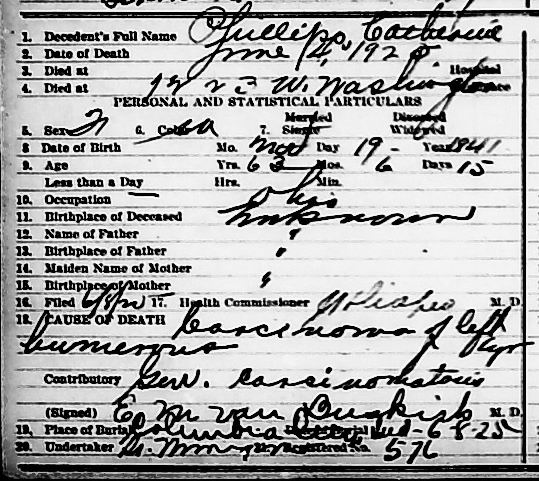 1. Decedent's Full Name Phillips, Catherine
2. Date of Death June 4, 1925
3. Died at Hospital
4. Died at W. Washington
PERSONAL AND STATISTICAL PARTICULARS
5. Sex 6. Color 7. Married Single Divorced Widowed
8 Date of Birth Mo. Day 19 - Year 1841
9. Age Yrs. Mos. 6 Days 15
Less than a Day — Hrs. Min.
10. Occupation
11. Birthplace of Deceased Ohio
12. Name of Father unknown
13. Birthplace of Father "
14. Maiden Name of Mother
15. Birthplace of Mother "
16. Filed 17. Health Commissioner M. D.
18. CAUSE OF DEATH Carcinoma of left
humerous 1 yr
Contributory Gen. Carcinomatous
(Signed) E. M. Van Buskirk M. D.
19. Place of Burial Columbia City 6-8-25
20. Undertaker Registered No. 576